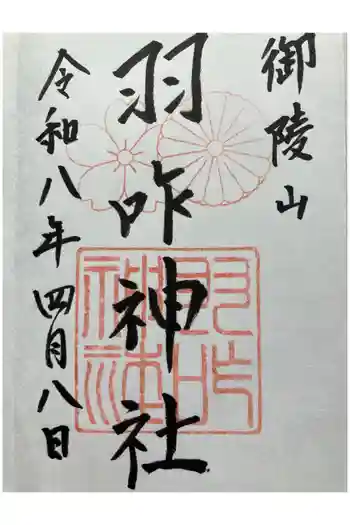 御陵山
羽咋神社
令和八年四月八日
羽咋
神社